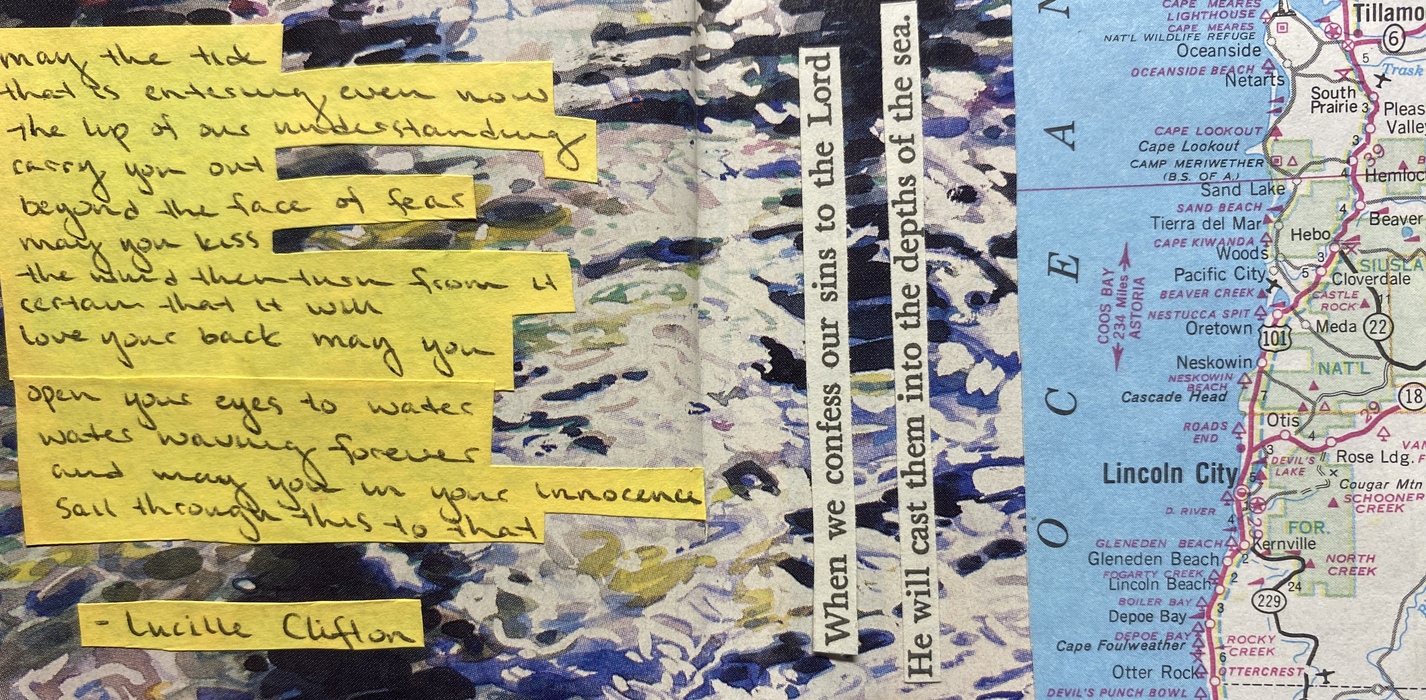 may the tide
that is entering even now
the lip of our understanding
carry you out
beyond the face of fear
may you kiss
the wind then turn from it
certain that it will
love your back may you
open your eyes to water
water waving forever
and may you in your innocence
sail through this to that
- Lucille Clifton
When we confess our sins to the Lord
He will cast them into the depths of the sea.
OCEAN
CAPE MEARES
LIGHTHOUSE
CAPE MEARES
NAT'L WILDLIFE REFUGE
Oceanside
OCEANSIDE BEACH
Netarts
Tillamo
6
5
Trask
South
Prairie
3
Pleas
Valley
CAPE LOOKOUT
Cape Lookout
CAMP MERIWETHER
(B.S. OF A.)
3
39
4
Hemloc
Sand Lake
SAND BEACH
Tierra del Mar
CAPE KIWANDA
Woods
Pacific City
4
Beaver
Hebo
3
5
SIUSLA
Cloverdale
BEAVER CREEK
NESTUCCA SPIT
Oretown
CASTLE
ROCK
11
COOS BAY
234 Miles
ASTORIA
101
Meda
22
Neskowin
NESKOWIN
BEACH
Cascade Head
NAT'L
7
18
29
ROADS
END
Otis
4
3
Rose Ldg.
VAN
F
DEVIL'S
LAKE
Lincoln City
5
Cougar Mtn
SCHOONER
CREEK
D. RIVER
4
FOR.
GLENEDEN BEACH
Kernville
Gleneden Beach
2
FOGARTY CREEK
Lincoln Beach
2
NORTH
CREEK
24
229
BOILER BAY
Depoe Bay
3
DEPOE BAY
Cape Foulweather
ROCKY
CREEK
6
Otter Rock
OTTERCREST
DEVIL'S PUNCH BOWL